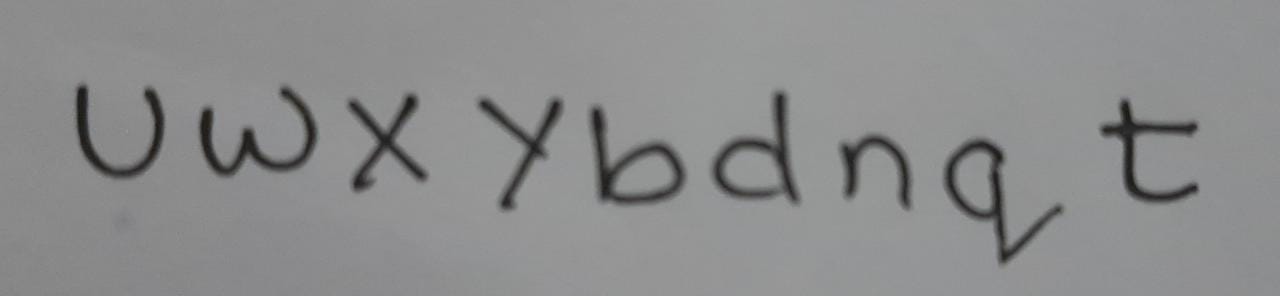 U w X Y b d n q t